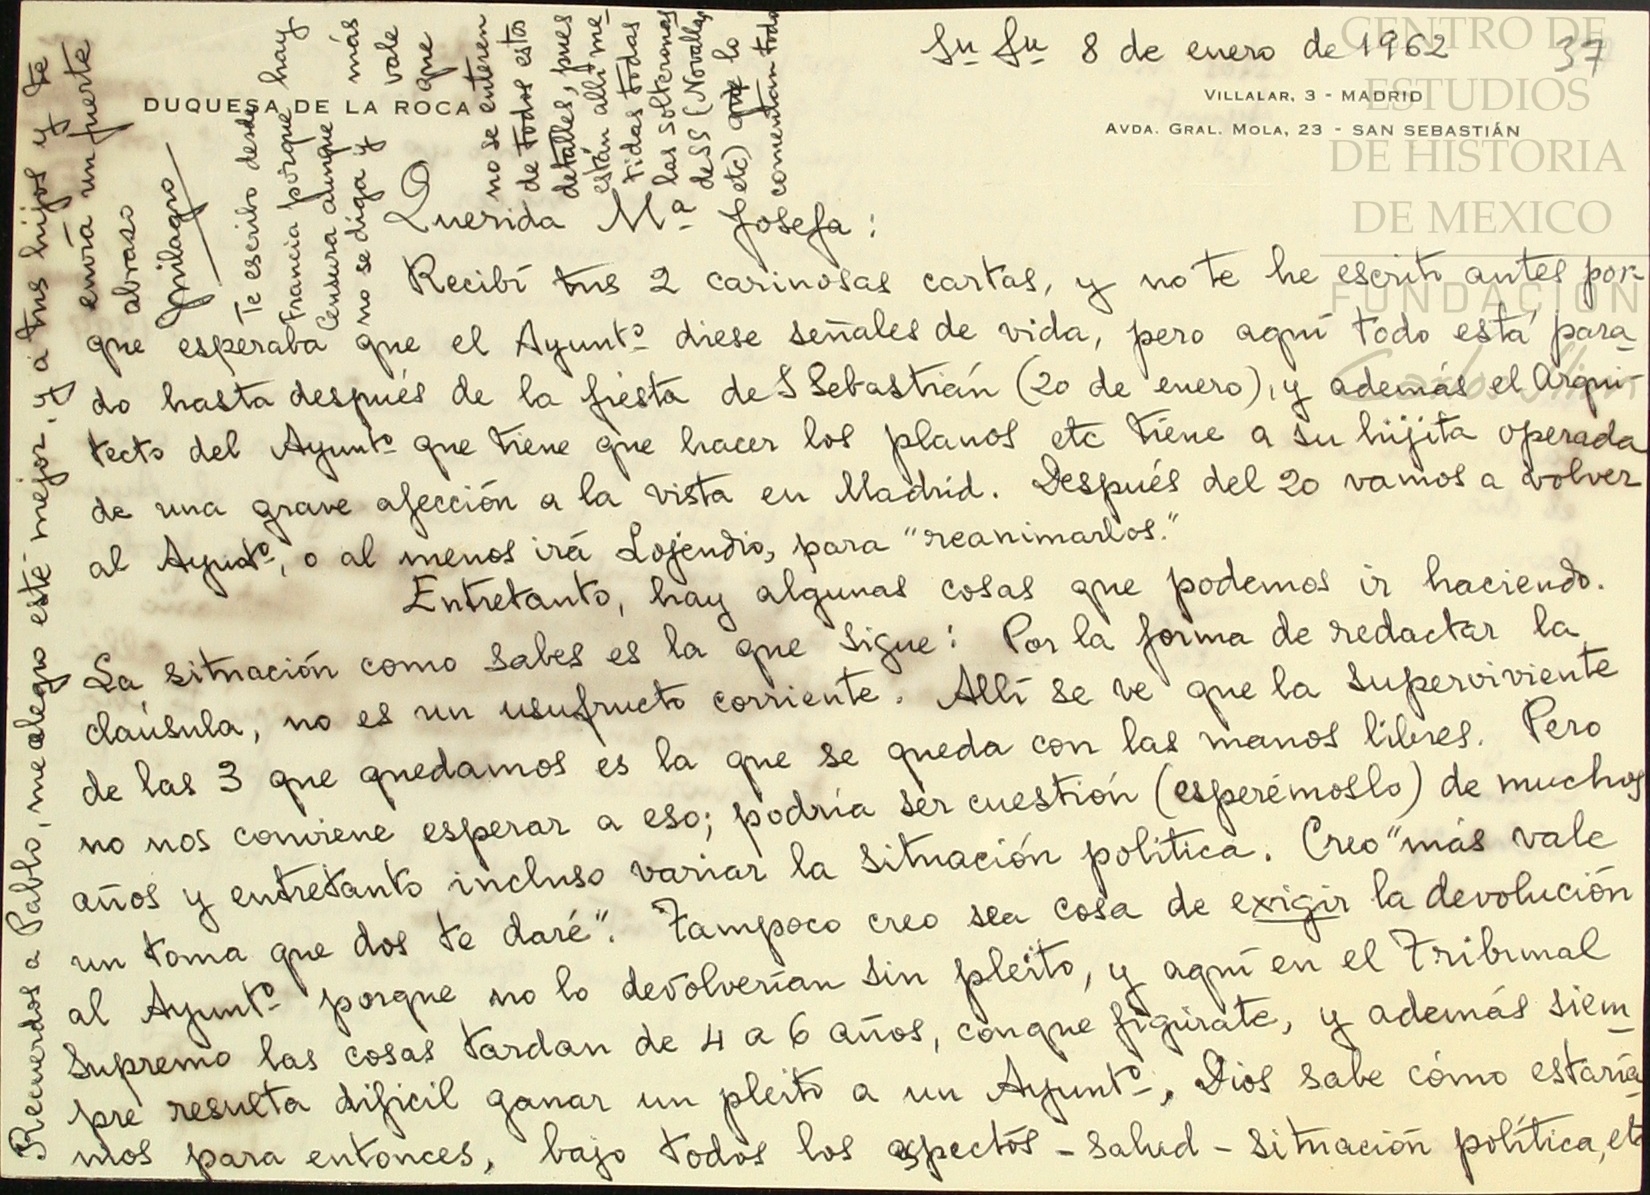 Sn Sn 8 de enero de 1962
37
DUQUESA DE LA ROCA
VILLALAR, 3 - MADRID
AVDA. GRAL. MOLA, 23 - SAN SEBASTIÁN
CENTRO DE
ESTUDIOS
DE HISTORIA
DE MEXICO
FUNDACIÓN
Querida Mª Josefa:
Recibí tus 2 carinosas cartas, y no te he escrito antes por-
que esperaba que el Ayuntº diese señales de vida, pero aquí todo está para-
do hasta después de la fiesta de S Sebastián (20 de enero), y además el Arqui-
tecto del Ayuntº que tiene que hacer los planos etc tiene a su hijita operada
de una grave afección a la vista en Madrid. Después del 20 vamos a volver
al Ayuntº, o al menos irá Lojendio, para "reanimarlos."
Entretanto, hay algunas cosas que podemos ir haciendo.
La situación como sabes es la que sigue: Por la forma de redactar la
claúsula, no es un usufructo corriente. Allí se ve que la superviviente
de las 3 que quedamos es la que se queda con las manos libres. Pero
no nos conviene esperar a eso; podría ser cuestión (esperémoslo) de muchos
años y entretanto incluso variar la situación política. Creo "más vale
un toma que dos te daré". Tampoco creo sea cosa de exigir la devolución
al Ayuntº porque no lo devolverían sin pleito, y aquí en el Tribunal
Supremo las cosas tardan de 4 a 6 años, conque figúrate, y además siem-
pre resulta dificil ganar un pleito a un Ayuntº. Dios sabe cómo estaría-
mos para entonces, bajo todos los aspectos - salud - situación política, etc
Recuerdos a Pablo, me alegro esté mejor, y a tus hijos y te
envía un fuerte
abraso
Milagro
Te escribo desde
Francia porque hay
Censura aunque más
no se diga y vale
que
no se enteren
de todos estos
detalles, pues
están allí me-
tidas todas
las solteronas
de SS (Novallas
etc) que lo
comentan todo